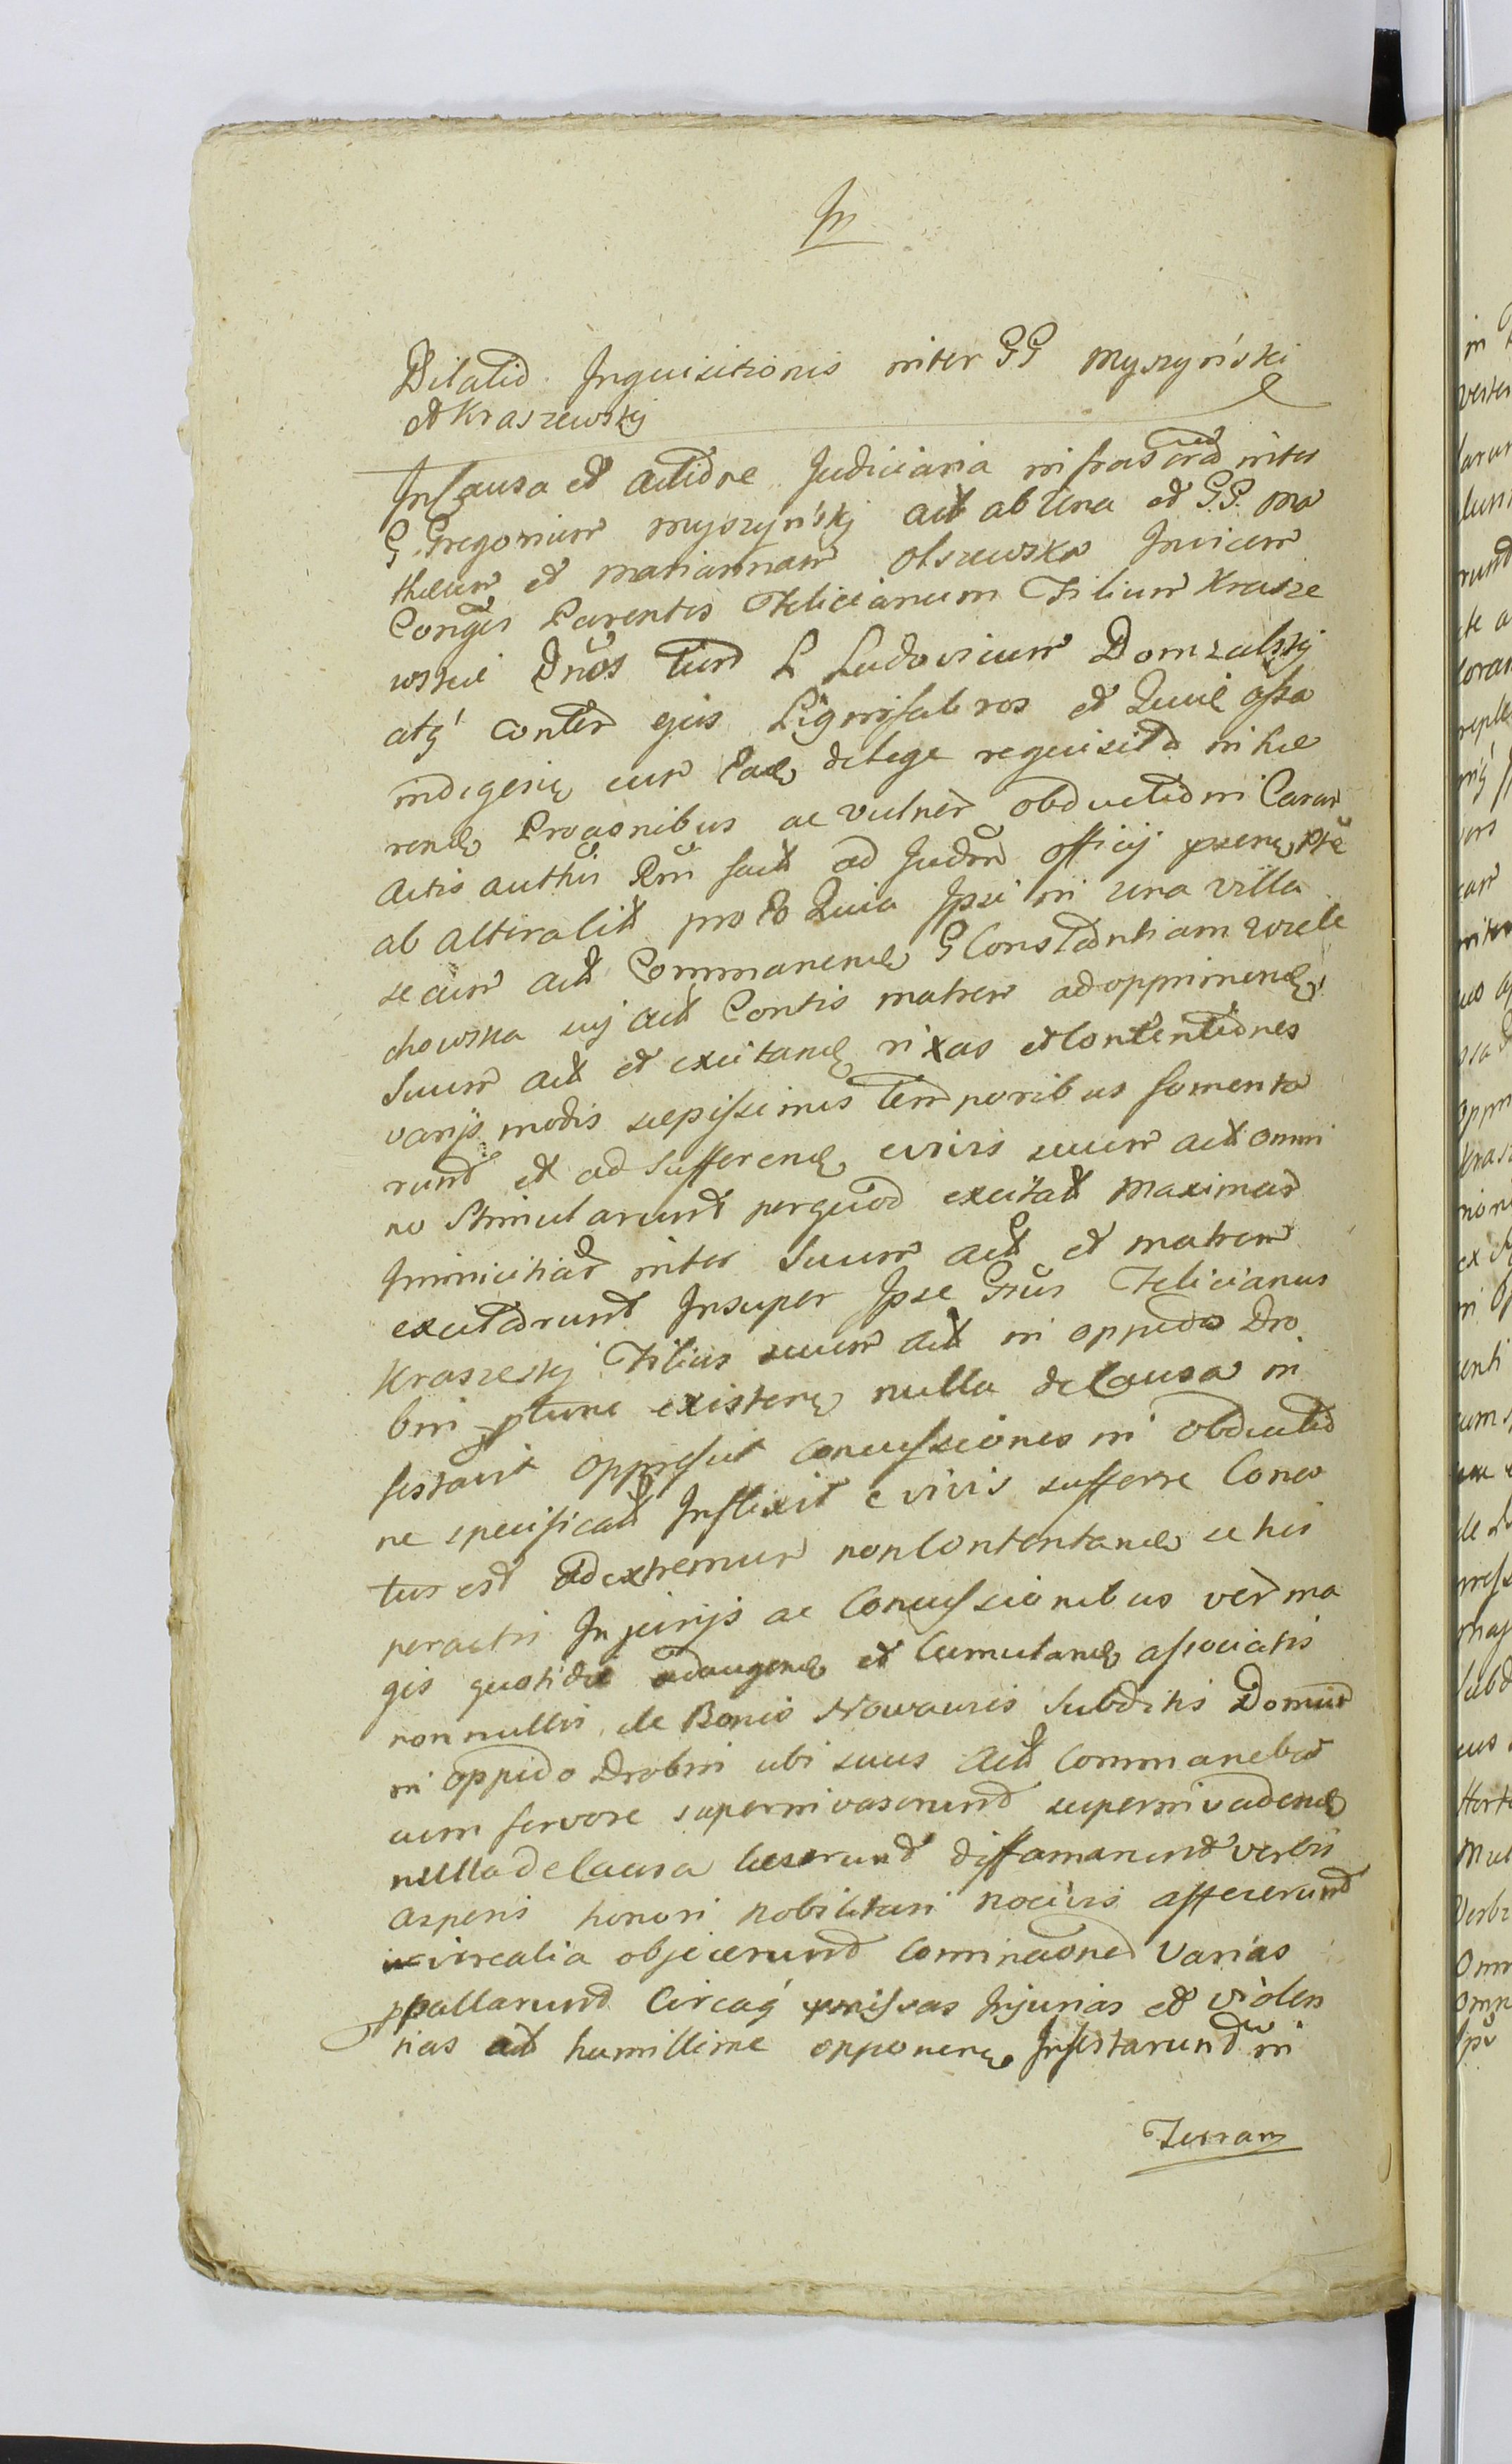 In
Dilatio Inquisitionis inter GG Myszyński
et Kraszewskij
In Causa et actione Judiciaria infrascrà inter
G Gregorium Myszyńskij act ab Una et G.G. Ma
thaeum et Mariannam Olszewska Invicem
Conges Parentes Felicianum Filium Krasze
wskie Gnos tum L Ludovicum Domzalskij
atq conter ejus Lignifabros et Quae offa
indigene cum Pane de lege requisita in hae
rend Proaonibus ac vulner obductioni Coram
actis authcis Rmi fact ad Judm officij psens ptē
ab altera lit pro eo Quia Ipsi in una villa
secum act Commanend G Constantiam Wiele
chowska uj act Contis matrem ad opprimend
Suum act et excitand rixas et Contentiones
varijs modis saepissimis temporibus fomenta
runt et ad sufferend evivis suum act omni
no Stimularunt perquod excitat Maximas
Inimicitias inter Suum act et matrem
excitarunt Insuper Ipse Gnus Felicianus
Kraszeskj Filius suum act in oppido Dro
bin ptunc existens nulla de Causa in
festavit oppressit concussiones in obductio
ne specificat Inflixit e vivis sufferre Cona
tus est ad extremum non Contentand se his
peractis Injurijs ac Concussionibus ver ma
gis quotidie adaugend et Cumuland associatis
nonnullis de Bonis Nowawis Subditis Domum
in oppido Drobin ubi suus act Commanebat
cum fervore superinvaserunt superinvadend
nulla de Causa laeserunt diffamarunt verbis
asperis honori nobilitari nocivis affecerunt
irrealia objicerunt Cominaoned Varias
ppallarunt Circaq pmissas Injurias et violen
tias act humillime opponens Infestarunt in
Terram